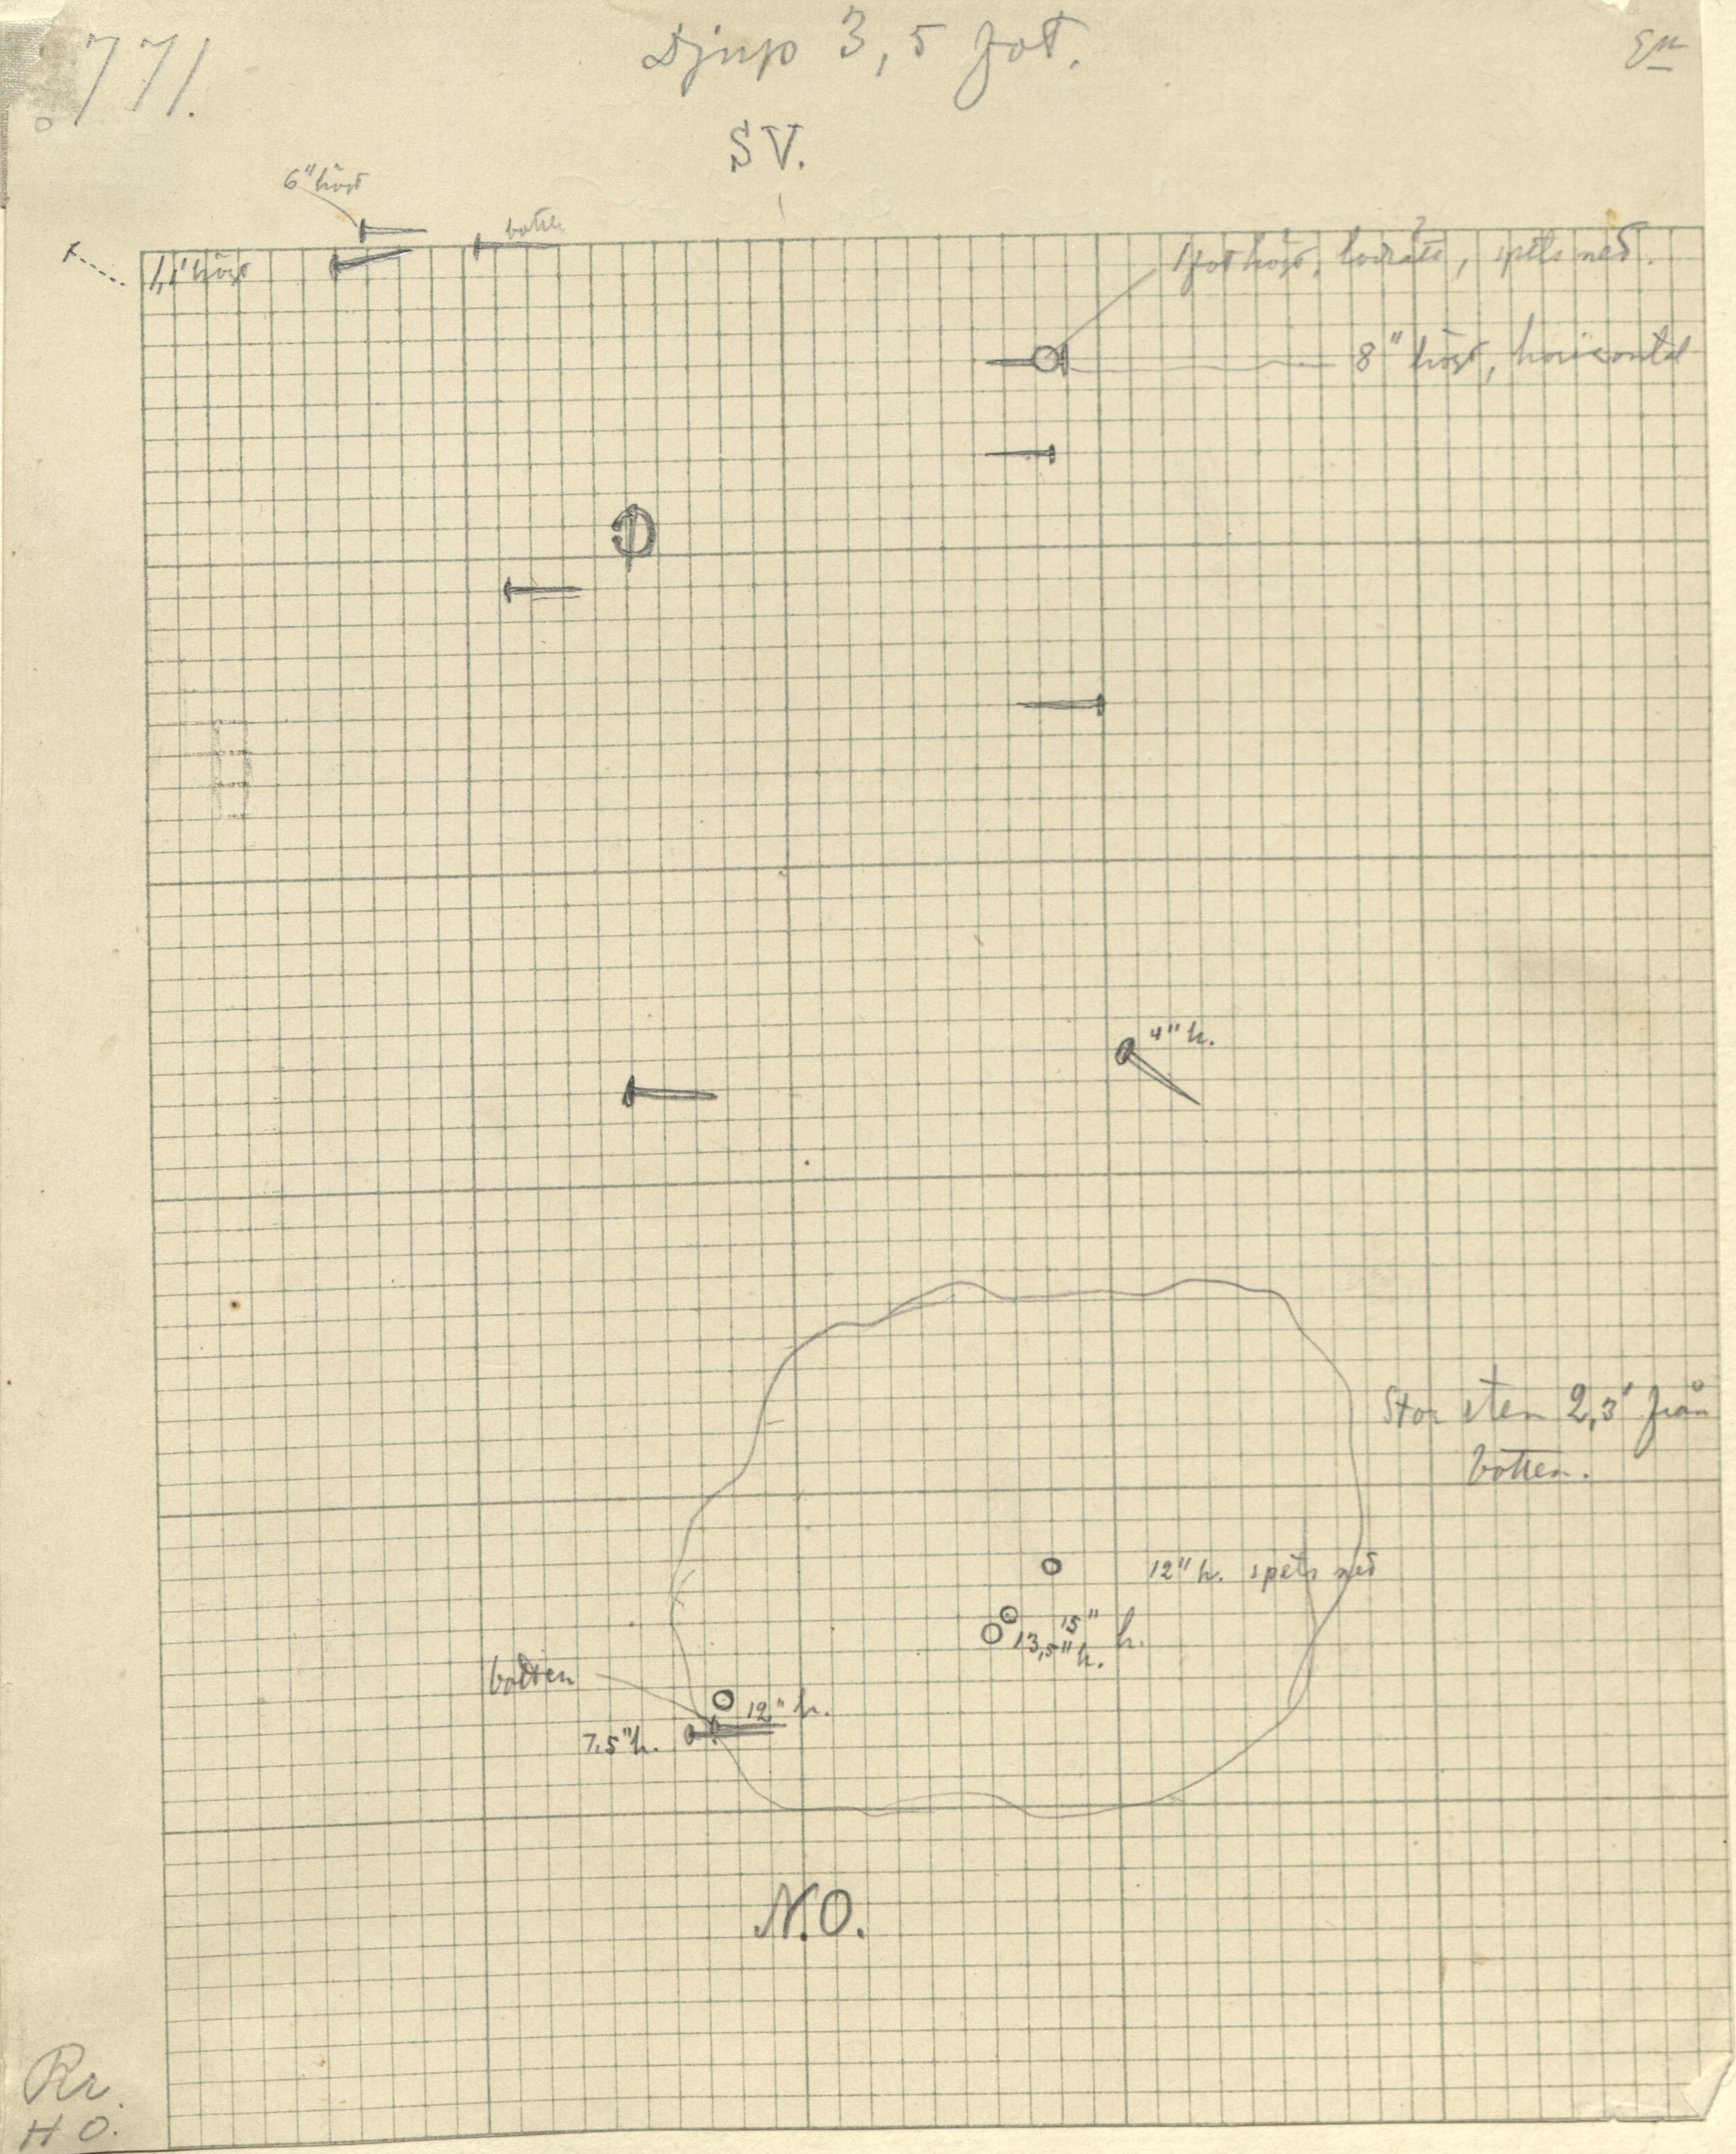 771.
Djup 3,5 fot.
SV.
6" högt
botten
1,1' högt
1 fot högt, lodrätt, spets ned.
8" högt, horisontal
4" h.
Stor sten 2,3' från
botten.
12" h. spets ned
15" h.
13,5" h.
botten
12" h.
7,5" h.
N.O.
Rr.
H O.